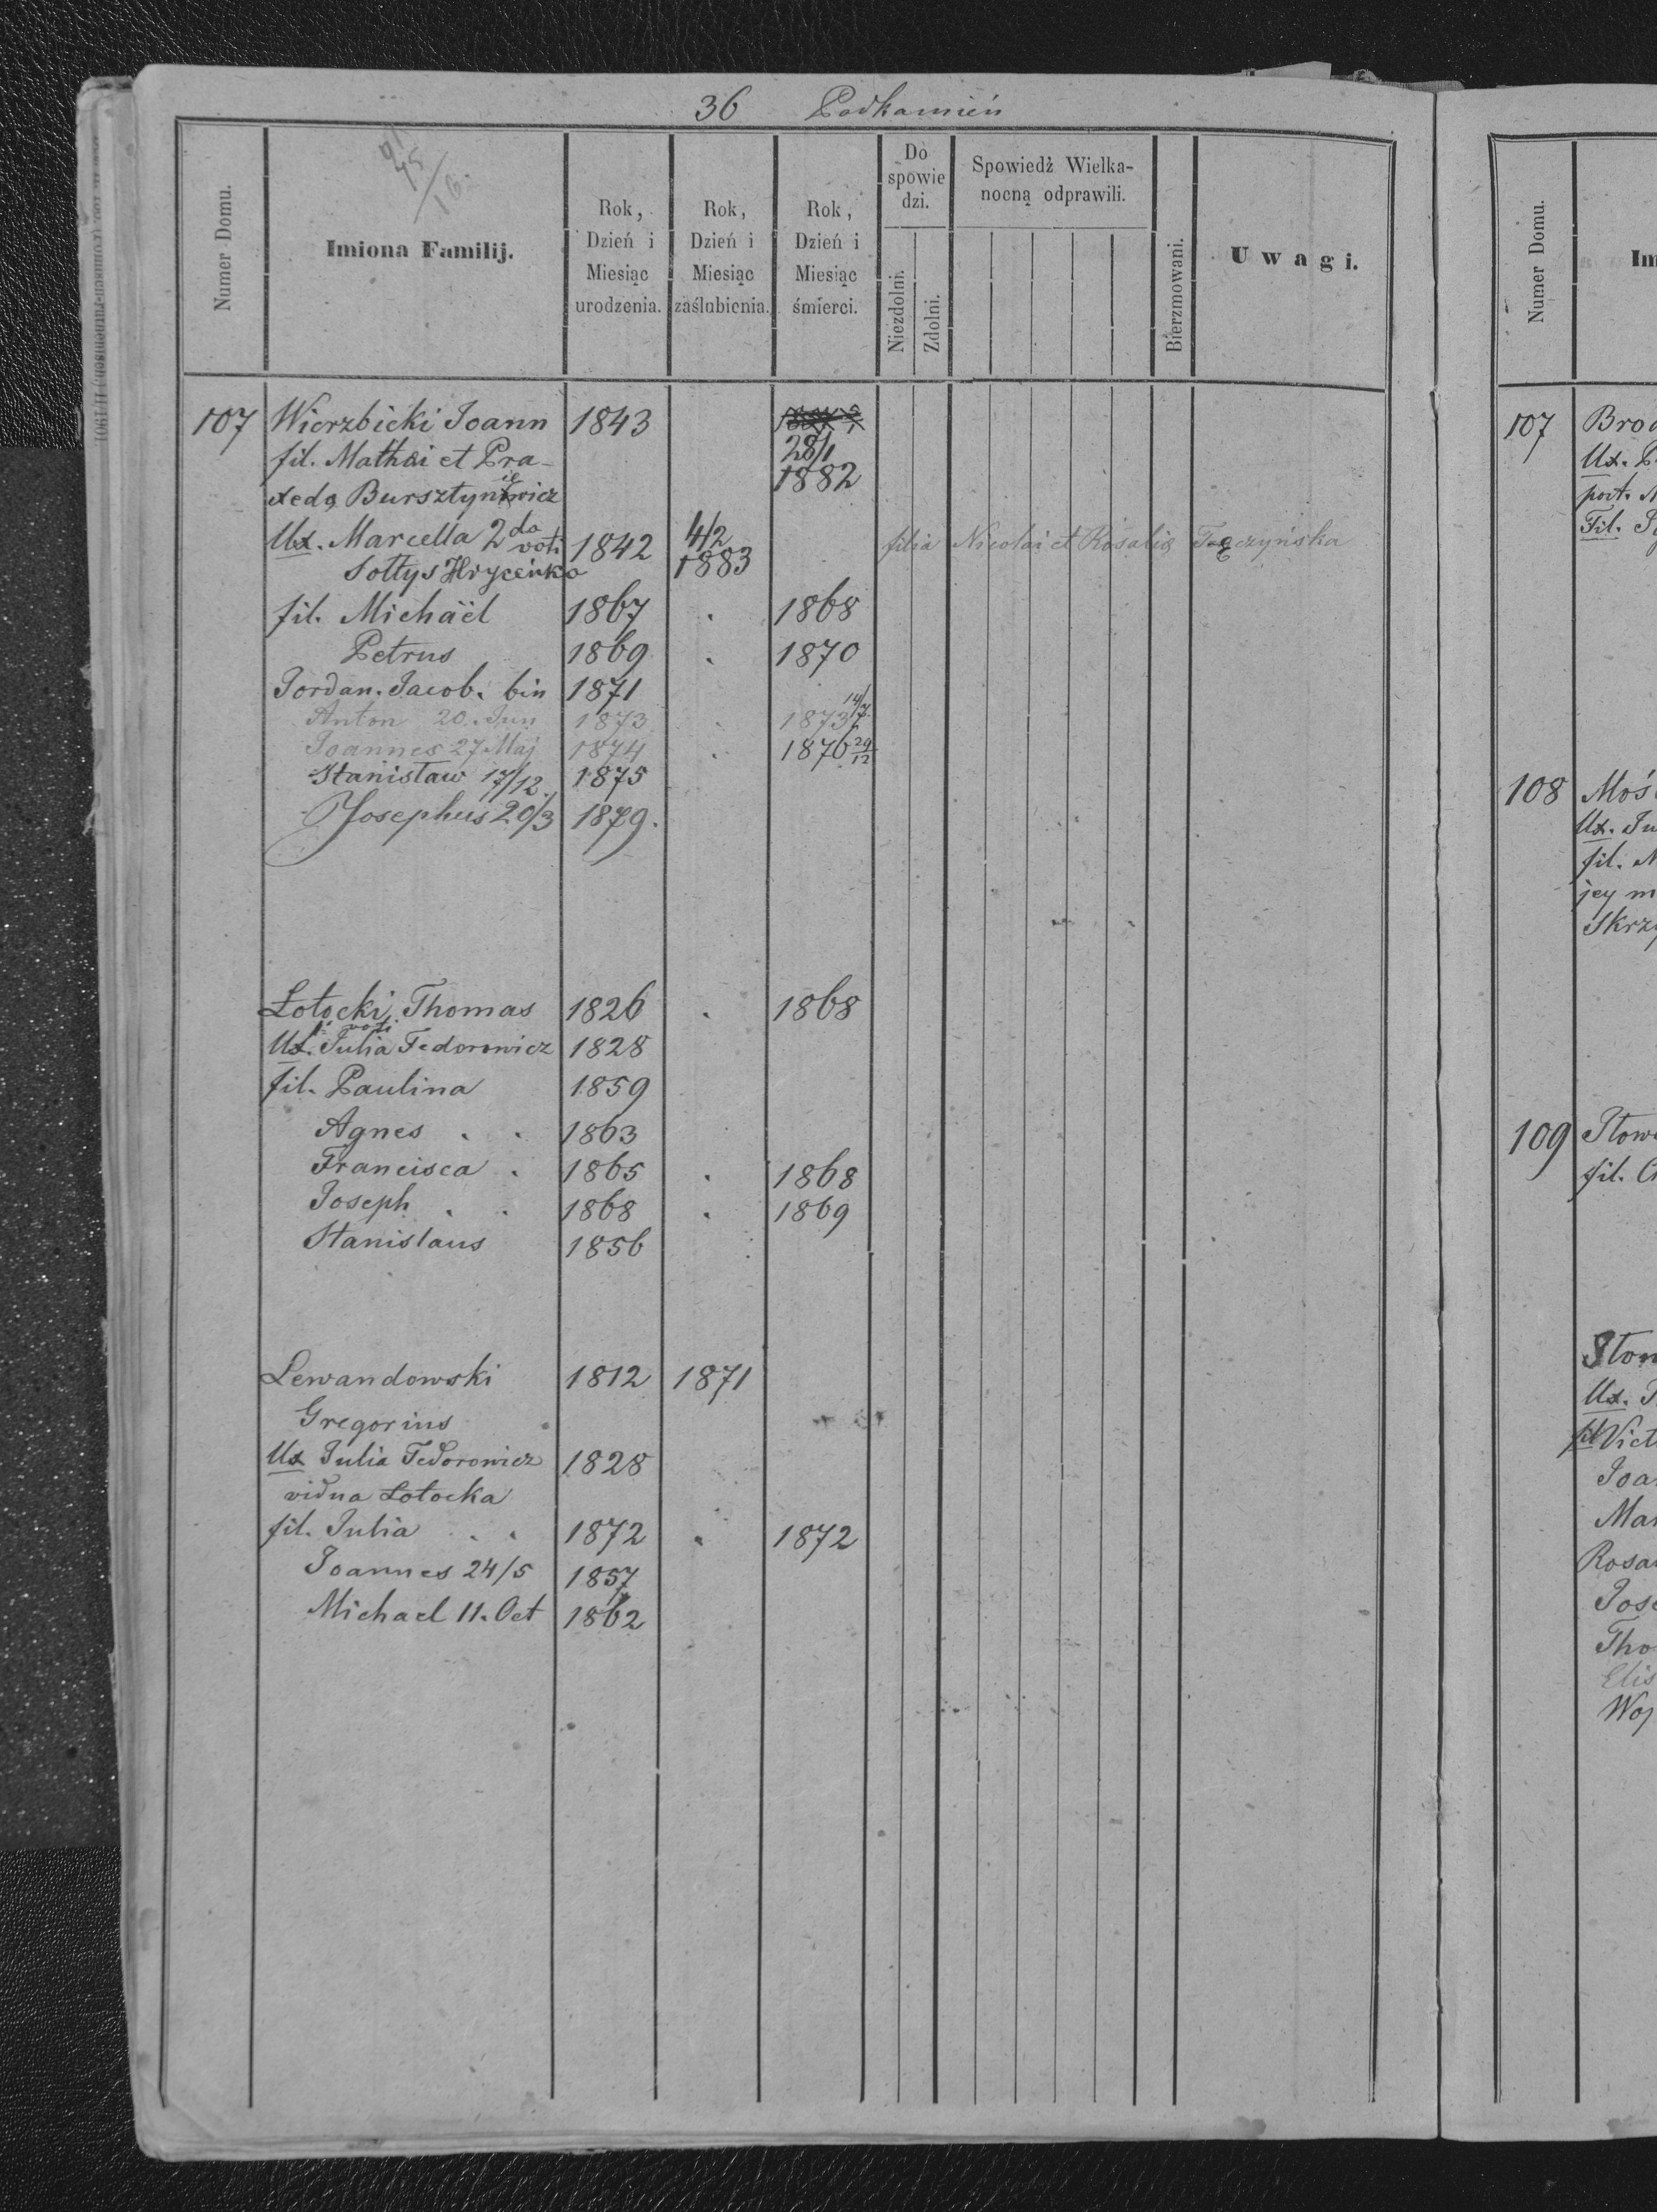 36 Podkamień
Numer Domu.
Imiona Familij.
Rok, Dzień i Miesiąc urodzenia.
Rok, Dzień i Miesiąc zaślubienia.
Rok, Dzień i Miesiąc śmierci.
Do spowiedzi.
Niezdolni.
Zdolni.
Spowiedź Wielkanocną odprawili.
Bierzmowani.
Uwagi.
107 Wierzbicki Joann 1843
fil. Mathæi et Pra- 28/1
xedę Bursztynowicz 1882
Ux. Marcella 2do voti 1842 4/2 1883 filia Nicolai et Rosalię Tęczyńska
Sołtys Hryceńko
fil. Michaël 1867 . 1868
Petrus 1869 . 1870
Jordan. Jacob. bin 1871
Anton 20. Jun 1873 . 1873 14/7
Joannes 27 Maj 1874 . 1876 29/12
Stanisław 17/12. 1875
Josephus 20/3 1879.
Łotocki Thomas 1826 . 1868
Ux. Julia Fedorowicz 1828
fil. Paulina 1859
Agnes . . 1863
Francisca . 1865 . 1868
Joseph . . 1868 . 1869
Stanislaus 1856
Lewandowski 1812 1871
Gregorius
Ux Julia Fedorowicz 1828
vidua Łotocka
fil. Julia . . 1872 . 1872
Joannes 24/5 1857
Michael 11. Oct 1862
Numer Domu.
107
Ux.
Fil.
108
Ux.
fil.
jey
109
fil.
Ux.